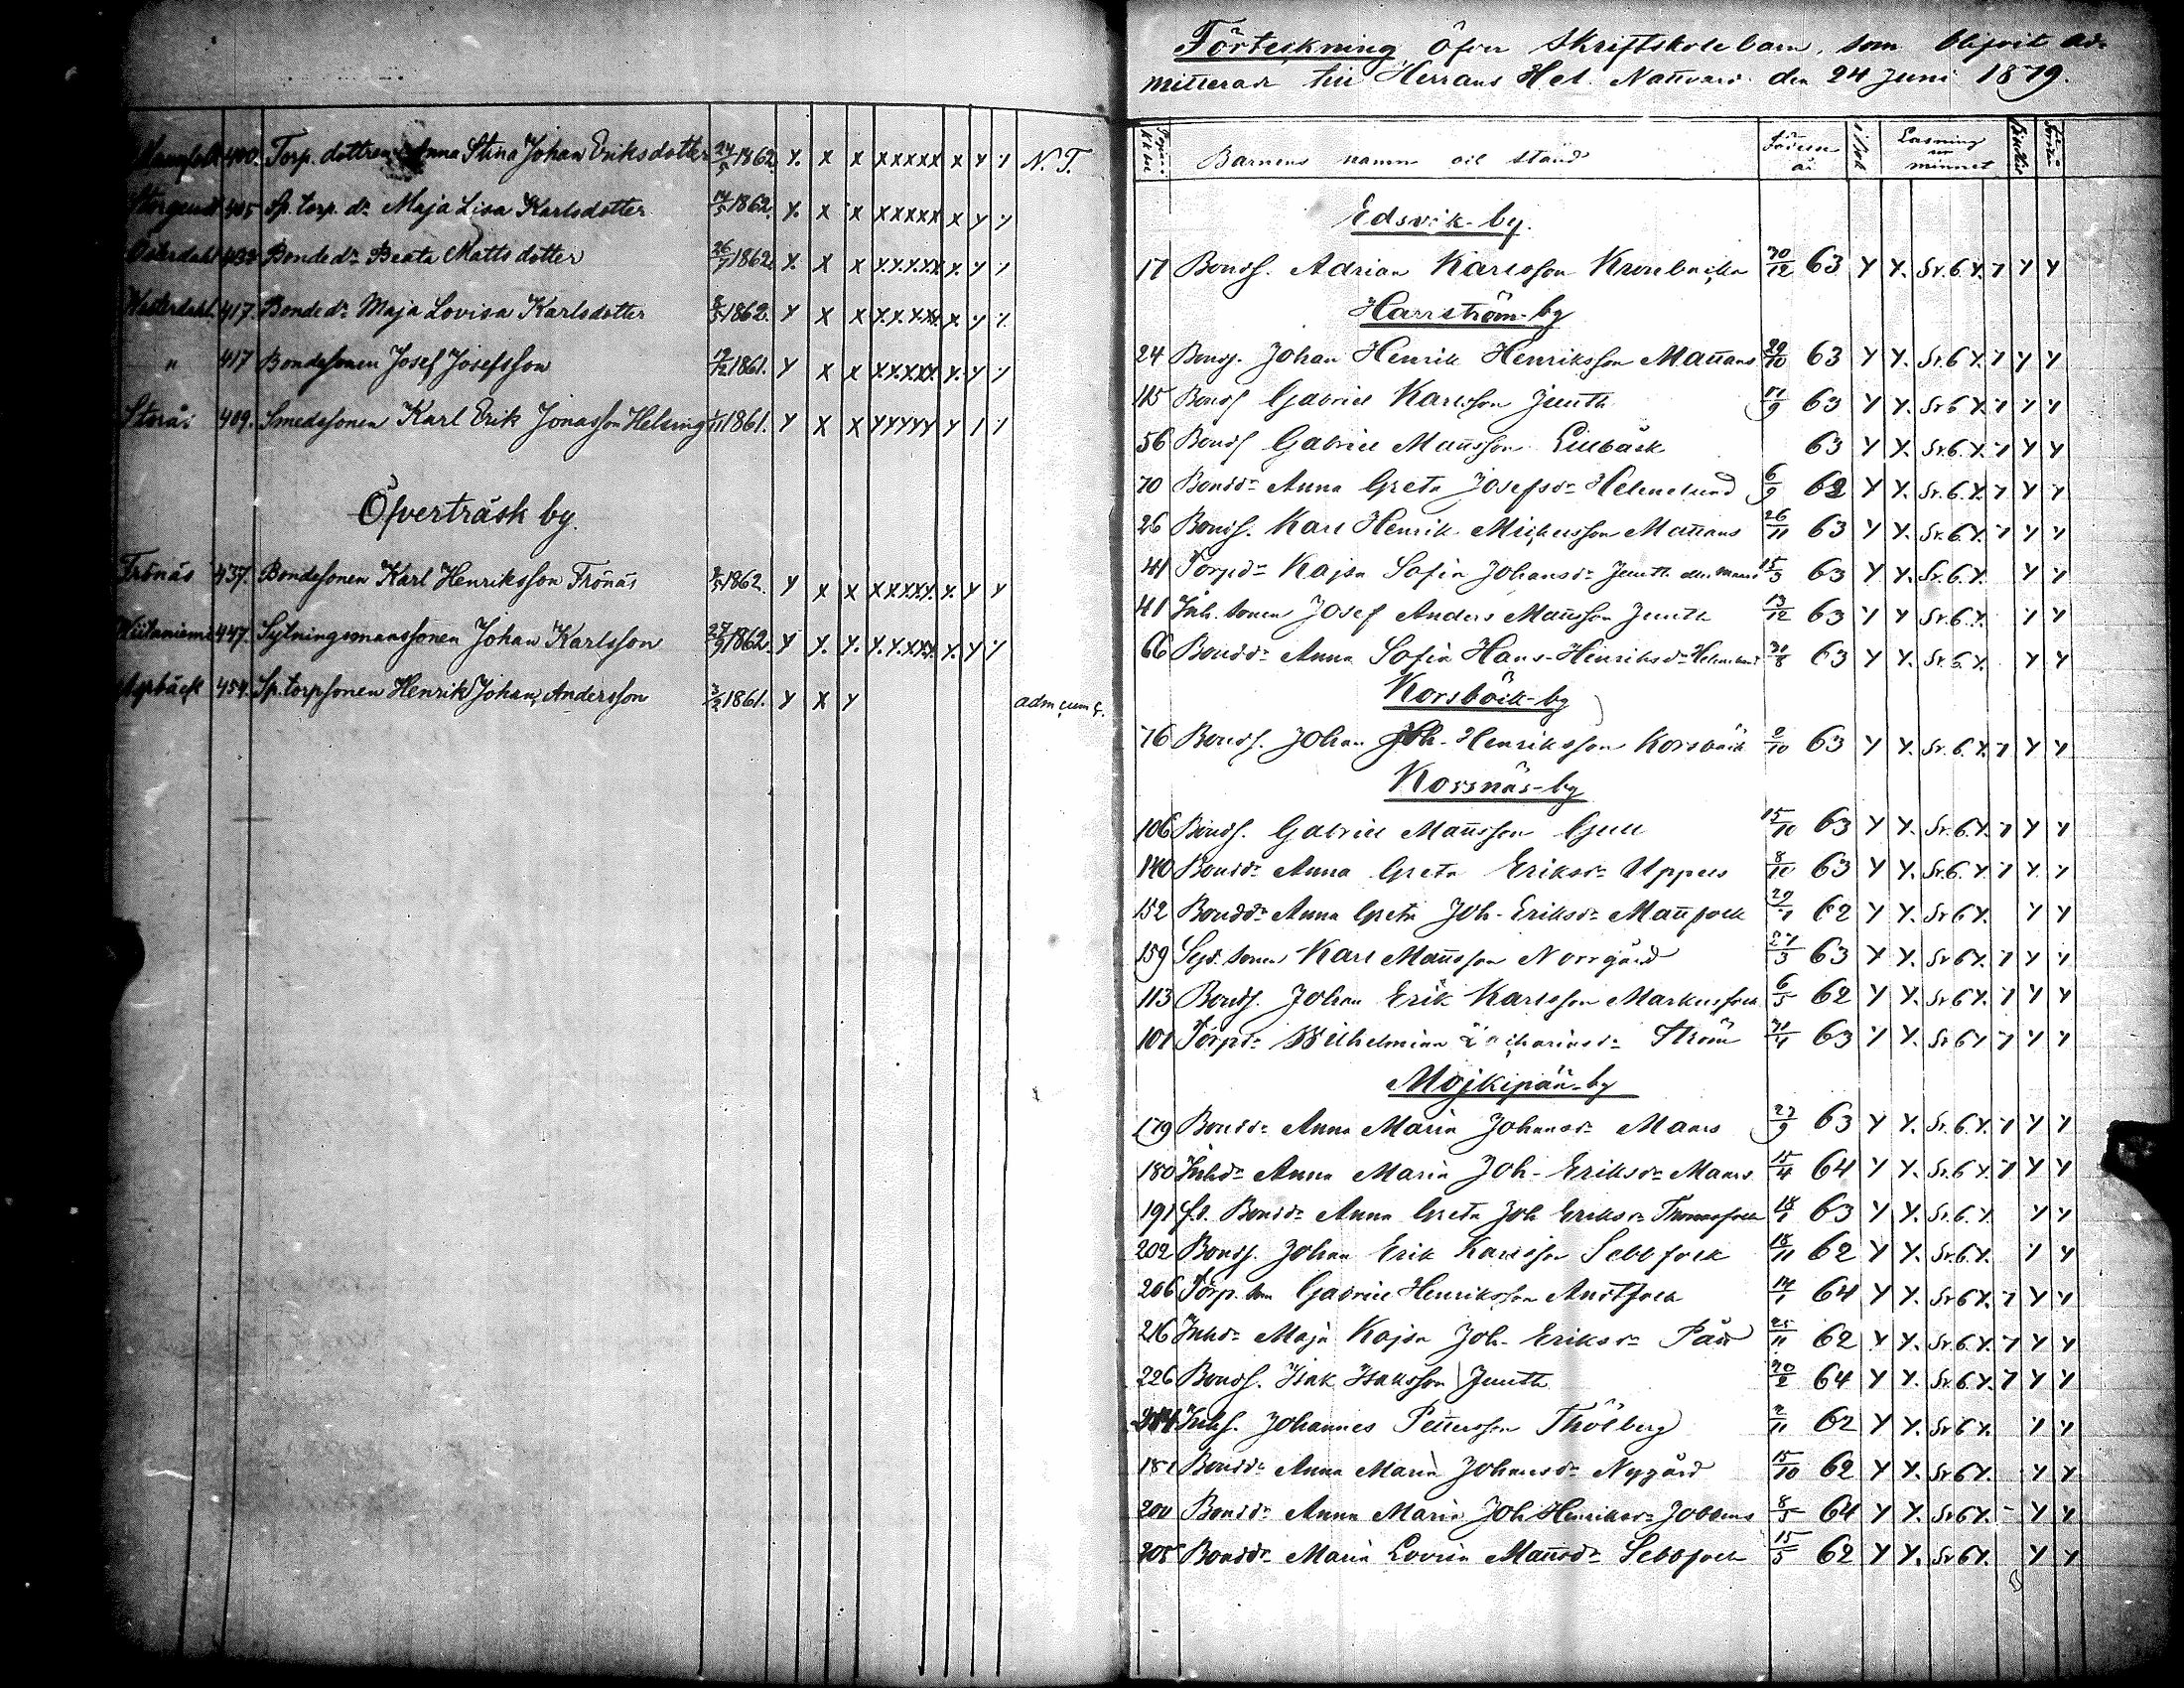 400. Torp. dottren Anna Stina Johan Eriksdotter 24/5 1862. Y. X X XXXXX X Y Y N. T.
405 Sp. torp. dr Maja Lisa Karlsdotter 14/5 1862. Y. X X XXXXX X Y Y
Österdahl 432 Bonde dr Beata Mattsdotter 26/7 1862. Y. X X X.X.X.XX X. Y Y
Westerdahl. 417. Bonde dr Maja Lovisa Karlsdotter 8/5 1862. Y X X X.X.X.XX. X Y Y.
" 417 Bondesonen Josef Josefsson 19/12 1861. Y X X XX.XXX. X. Y Y
Storå: 409. Smedssonen Karl Erik Jonasson Helsing 1/11 1861. Y X X YYYYY Y Y Y
Öfverträsk by.
Frönäs 437. Bondesonen Karl Henriksson Frönäs 1862. Y X X XXXXX. X. Y Y
447. Sytningsmanssonen Johan Karlsson 27/9 1862. Y Y. Y. X.X.XXX. X. Y Y
454. Sp. torpsonen Henrik Johan Andersson 3/2 1861. Y X Y adm cum c.
Förteckning Öfver Skriftskolebarn, som blifvit ad-
mitterade till Herrans Hel. Nattvard den 24 Juni 1879.
Barnens namn och stånd Födelse år Läsning ur minnet
Edsvik-by.
17 Bonds. Adrian Karlsson Kronbäcka 30/12 63 Y Y. Sv. 6 Y. Y Y Y
Harrström-by
24 Bonds. Johan Henrik Henriksson Mattans 29/10 63 Y Y. Sv. 6 Y. Y Y Y
115 Bonds Gabriel Karlsson Juuth 11/9 63 Y Y. Sv 6 Y. Y Y Y
56 Bonds Gabriel Mattsson Lillbäck 63 Y Y. Sv. 6. Y. Y Y Y
70 Bonddr Anna Greta Josefsdr Helenelund 6/9 62 Y Y. Sv. 6. Y. Y Y Y
26 Bonds. Karl Henrik Mickelsson Mattans 26/11 63 Y Y. Sv. 6. Y. Y Y Y
41 Torpdr Kajsa Sofia Johansdr Juuth 15/3 63 Y Y. Sv. 6. Y. Y Y
41 Inh. sonen Josef Anders Mattsson Juuth 13/12 63 Y Y Sv. 6. Y. Y Y
66 Bonddr Anna Sofia Hans-Henriksdr Helenelund 31/8 63 Y Y. Sv. 6. Y. Y Y
Korsbäck-by
76 Bonds. Johan Joh-Henriksson Korsbäck 2/10 63 Y Y. Sv. 6. Y. Y Y Y
Korsnäs-by
106 Bonds. Gabriel Mattsson Gull 15/10 63 Y Y. Sv. 6. Y. Y Y Y
140 Bonddr Anna Greta Eriksdr Uppers 8/10 63 Y Y. Sv. 6. Y. Y Y. Y
152 Bonddr Anna Greta Joh-Eriksdr Mattfolk 62 Y Y. Sv 6 Y. Y Y
159 Syt. sonen Karl Mattsson Norrgård 27/3 63 Y Y. Sv 6 Y. Y Y Y
113 Bonds. Johan Erik Karlsson Markusfolk 6/5 62 Y Y. Sv 6 Y. Y Y Y
101 Torpdr Wilhelmina Zachariasdr Ström 63 Y Y. Sv 6 Y Y Y Y
Mojkipää-by
179 Bonddr Anna Maria Johansdr Maars 27/9 63 Y Y. Sv. 6. Y. Y Y Y
180 Inhdr Anna Maria Joh-Eriksdr Maars 15/4 64 Y Y. Sv. 6 Y. Y Y Y
191 f.d. Bonddr Anna Greta Joh Eriksdr Thomasfolk 63 Y Y. Sv. 6. Y. Y Y
202 Bonds. Johan Erik Karlsson Sebbfolk 18/11 62 Y Y. Sv. 6 Y. Y Y
206 Torp. son Gabriel Henriksson Anstfolk 14/1 64 Y Y. Sv 6 Y. Y Y Y
216 Inhdr Maja Kajsa Joh-Eriksdr Påst 25/11 62 Y Y. Sv. 6 Y. Y Y Y
226 Bonds. Isak Isaksson Juuth 20/2 64 Y Y. Sv. 6. Y. Y Y Y
Inhs. Johannes Pettersson Thölberg 2/11 62 Y Y. Sv 6 Y. Y Y
181 Bonddr Anna Maria Johansdr Nygård 15/10 62 Y Y. Sv 6 Y. Y Y
200 Bonddr Anna Maria Joh Henriksdr Jobbens 8/5 64 Y Y. Sv 6 Y. - Y Y
208 Bonddr Maria Lovisa Mattsdr Sebbfolk 15/5 62 Y Y. Sv 6 Y. Y Y